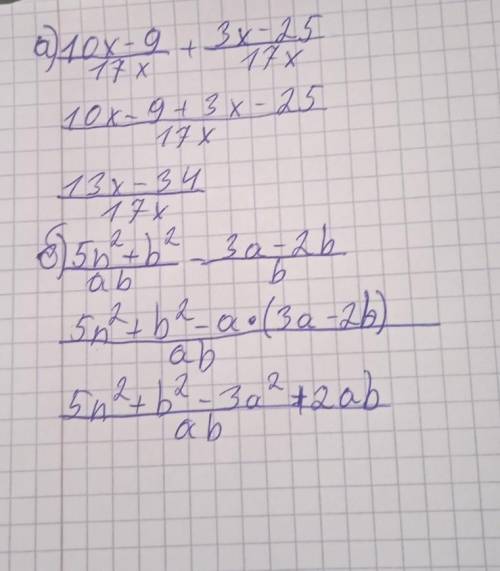 а) (10x-9)/(17x) + (3x-25)/(17x)
(10x-9+3x-25)/(17x)
(13x-34)/(17x)
б) (5n²+b²)/(ab) - (3a-2b)/b
(5n²+b²-a•(3a-2b))/(ab)
(5n²+b²-3a²+2ab)/(ab)